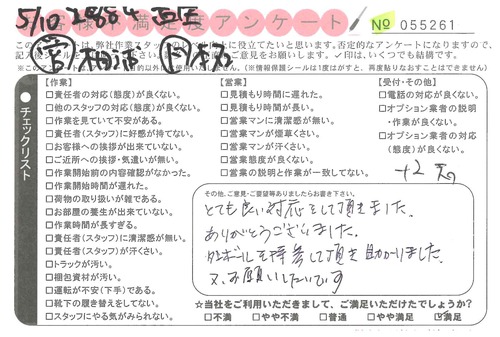 5/10 2884
お客様不満足度アンケート
No 055261
㊢相沍
このアンケートは、弊社作業スタッフのレベル向上に役立てたいと思います。否定的なアンケートになりますので、
ご意見をお願いします。メ印は、いくつでも結構です。
チェックリスト
【作業】
□責任者の対応(態度)が良くない。
□他のスタッフの対応(態度)が良くない。
□作業を見ていて不安がある。
□責任者(スタッフ)に好感が持てない。
□お客様への挨拶が出来ていない。
□ご近所への挨拶・気遣いが無い。
□作業開始前の内容確認がなかった。
□作業開始時間が遅れた。
□荷物の取り扱いが雑である。
□お部屋の養生が出来ていない。
□作業時間が長すぎる。
□責任者(スタッフ)に清潔感が無い。
□責任者(スタッフ)が汗くさい。
□トラックが汚い。
□梱包資材が汚い。
□運転が不安(下手)である。
□靴下の履き替えをしてない。
□スタッフにやる気がみられない。
【営業】
□見積もり時間に遅れた。
□見積もり時間が長い。
□営業マンに清潔感が無い。
□営業マンが煙草くさい。
□営業マンが汗くさい。
□営業態度が良くない。
□営業の説明と作業が一致してない。
【受付・その他】
□電話の対応が良くない。
□オプション業者の説明
・作業が良くない。
□オプション業者の対応
(態度)が良くない。
+2
その他、ご意見・ご要望等ありましたらお書き下さい。
とても良い対応をして頂きました。
ありがとうございました。
ダンボールを持参して頂き助かりました。
又、お願いしたいです
☆当社をご利用いただきまして、ご満足いただけたでしょうか?
□不満 □やや不満 □普通 □やや満足 ☑満足